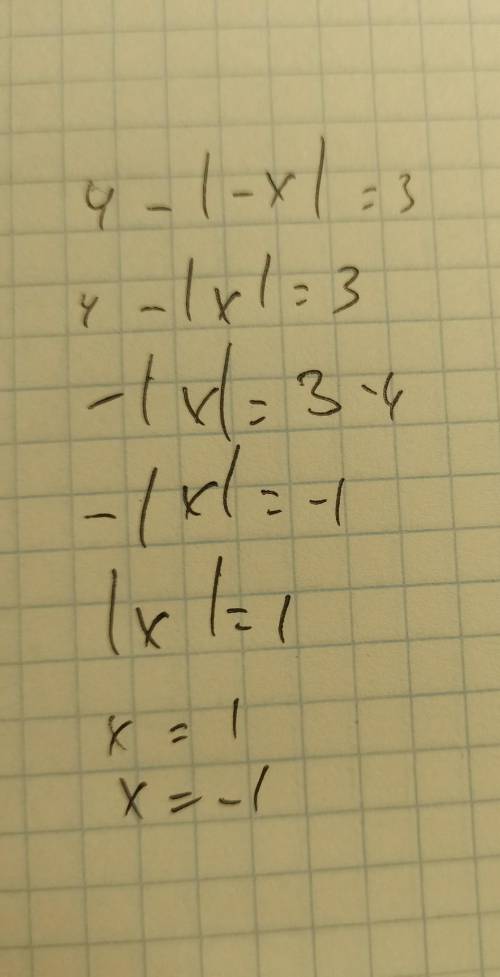 4 - |-x| = 3
4 - |x| = 3
-|x| = 3 - 4
-|x| = -1
|x| = 1
x = 1
x = -1